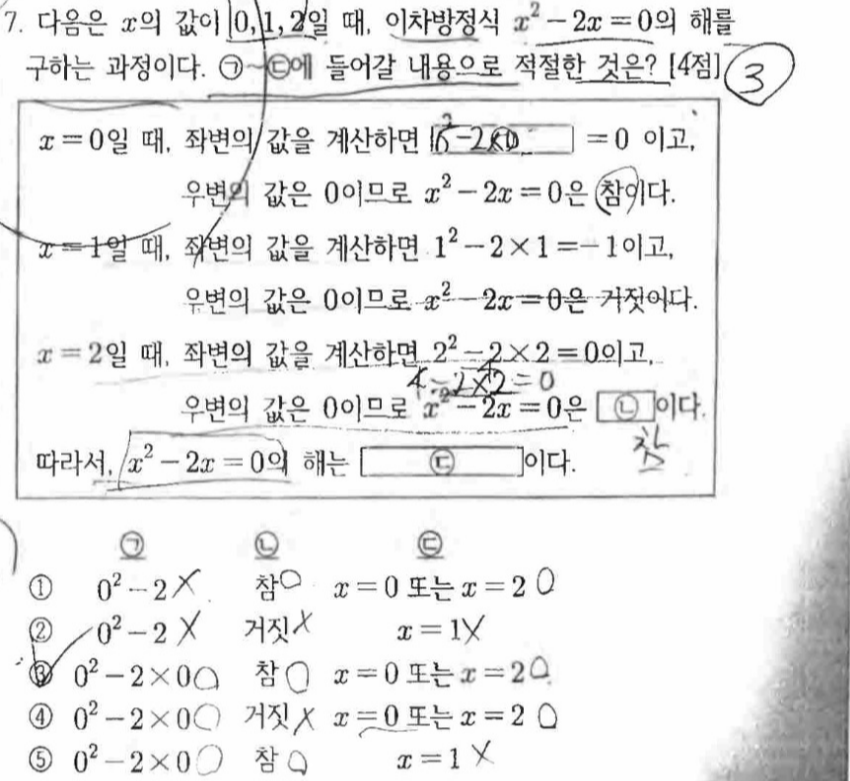 7. 다음은 x의 값이 0, 1, 2일 때, 이차방정식 x² - 2x = 0의 해를
구하는 과정이다. ㉠~㉢에 들어갈 내용으로 적절한 것은? [4점] 3
x = 0일 때, 좌변의 값을 계산하면 0² - 2×0 = 0 이고,
우변의 값은 0이므로 x² - 2x = 0은 참이다.
x = 1일 때, 좌변의 값을 계산하면 1² - 2×1 = -1이고,
우변의 값은 0이므로 x² - 2x = 0은 거짓이다.
x = 2일 때, 좌변의 값을 계산하면 2² - 2×2 = 0이고,
4 - 2×2 = 0
우변의 값은 0이므로 x² - 2x = 0은 ㉡이다.
참
따라서, x² - 2x = 0의 해는 ㉢이다.
㉠ ㉡ ㉢
① 0² - 2 X 참 O x = 0 또는 x = 2 O
② 0² - 2 X 거짓 X x = 1 X
③ 0² - 2×0 O 참 O x = 0 또는 x = 2 O
④ 0² - 2×0 O 거짓 X x = 0 또는 x = 2 O
⑤ 0² - 2×0 O 참 O x = 1 X